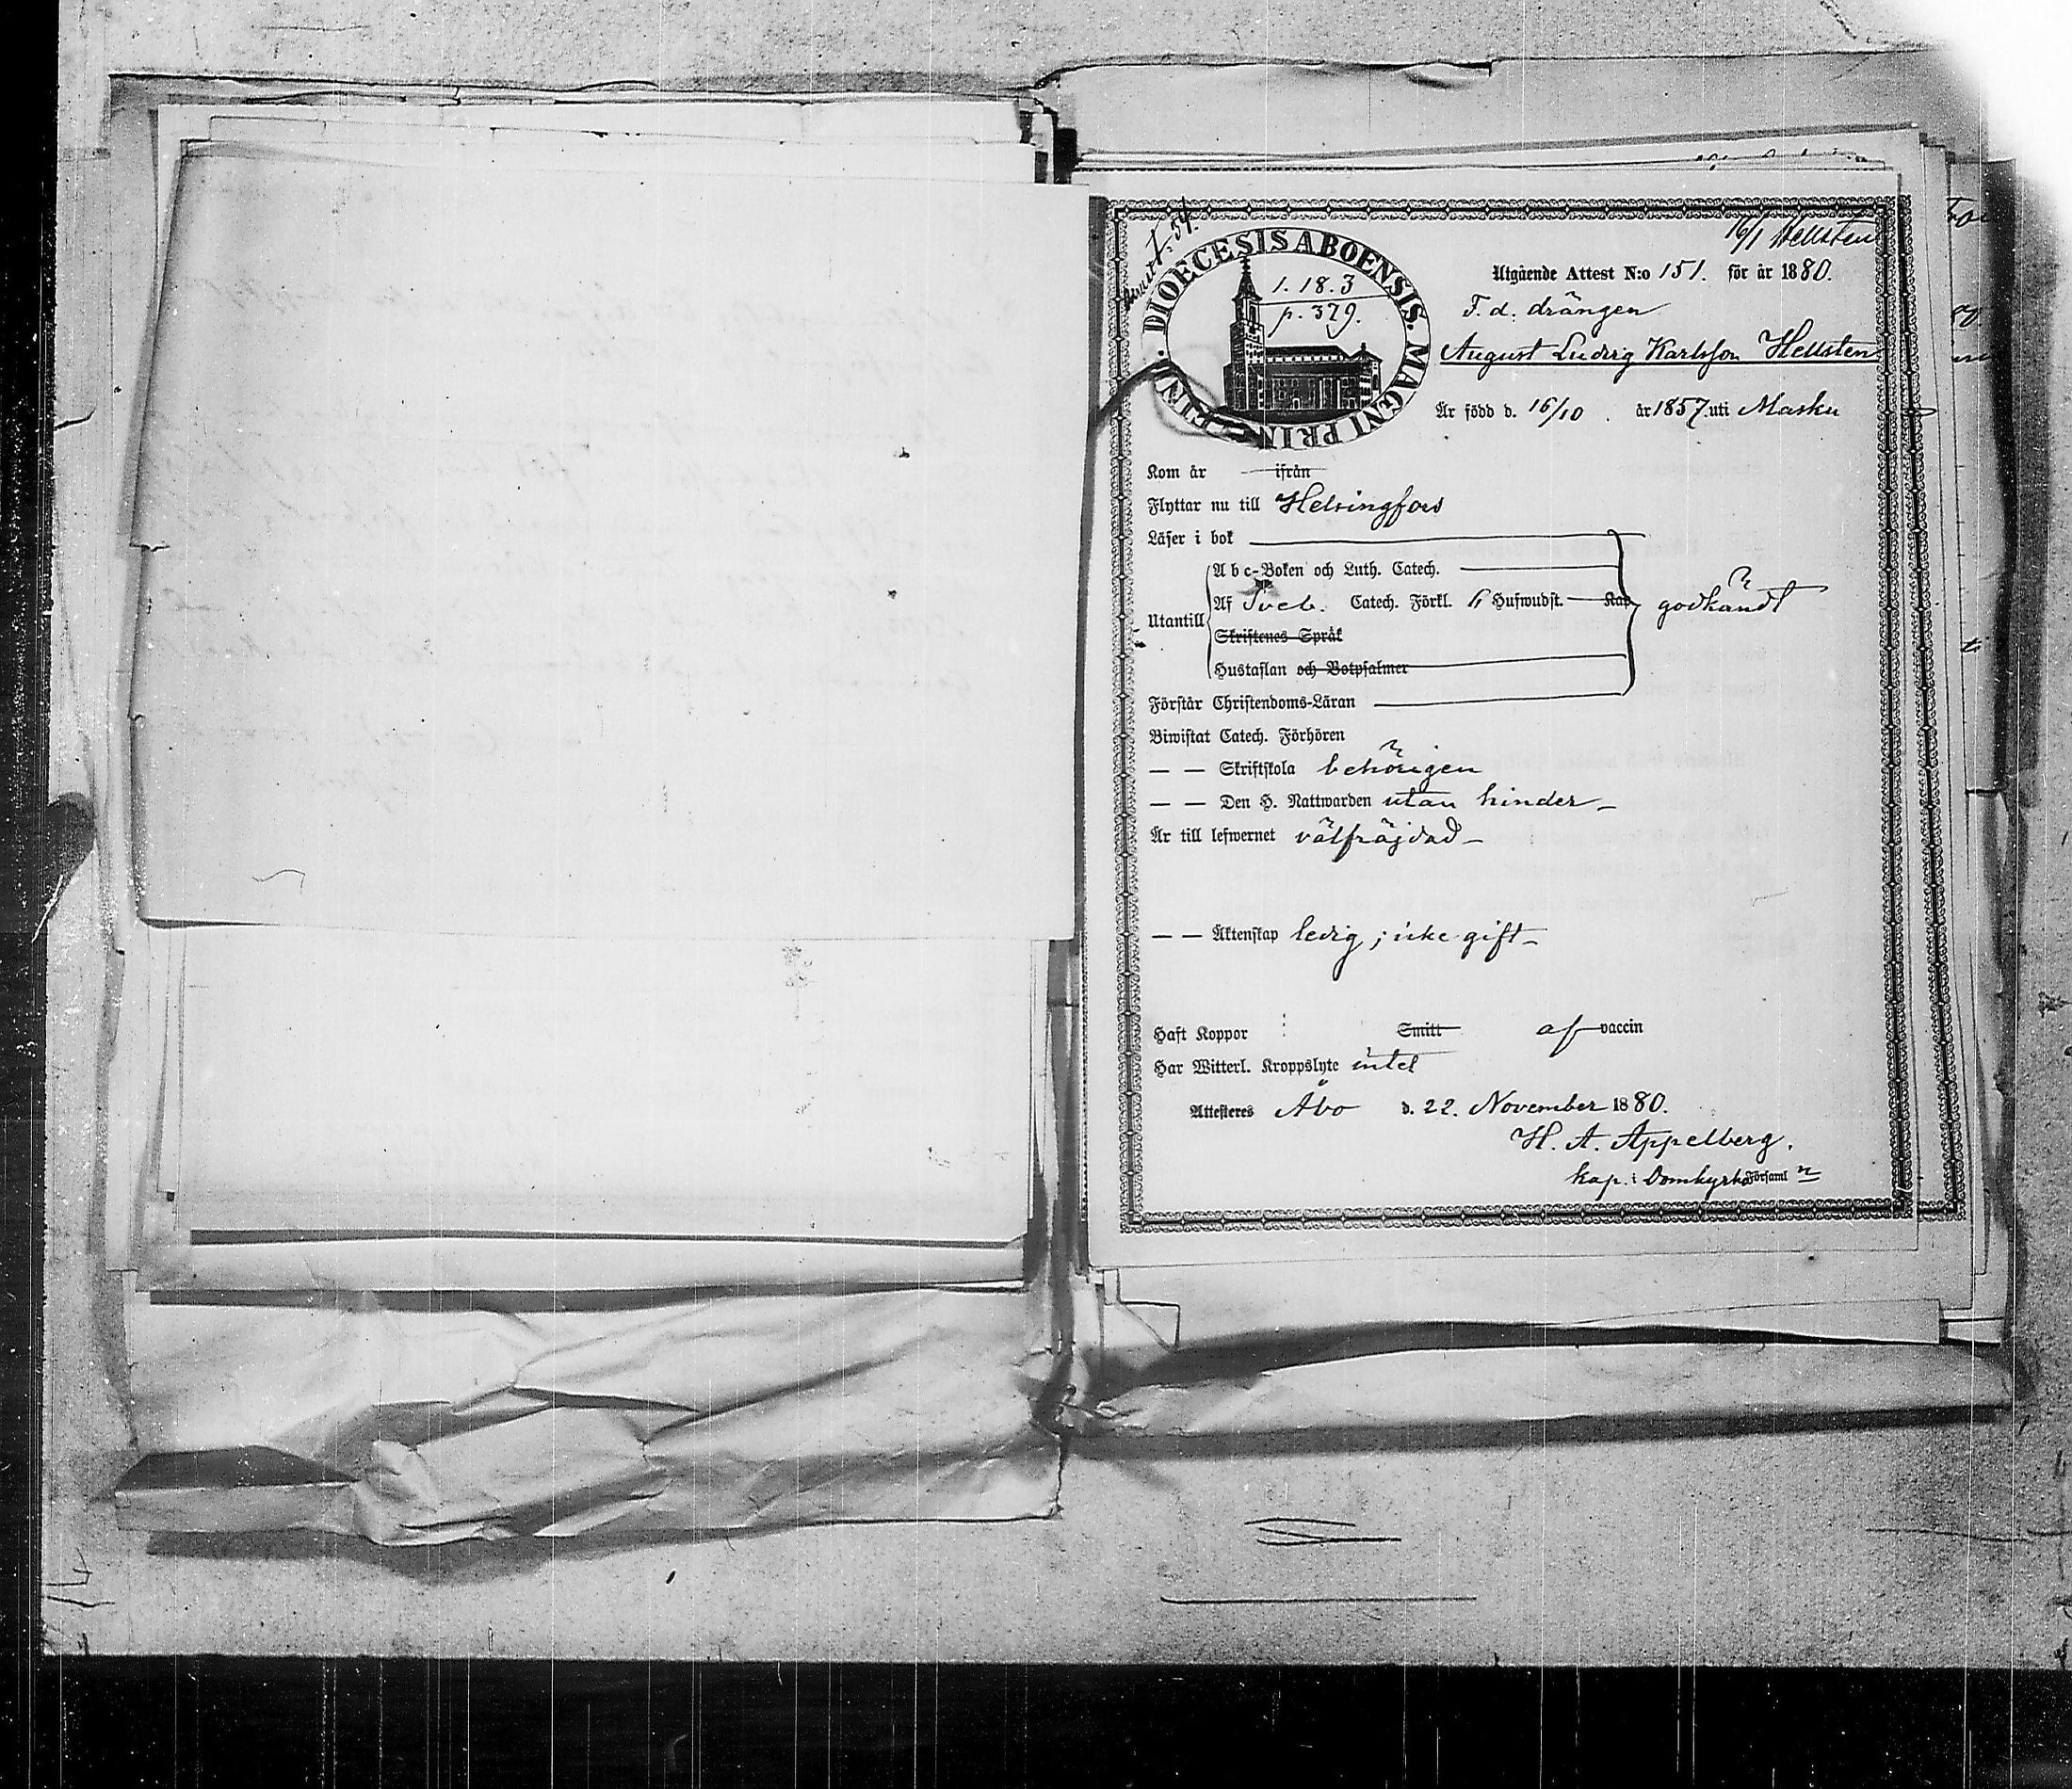 16/1 Hellsten
DIOECESIS ABOENSIS. MAGNI PRIN. FIN.
1. 18. 3
p. 379.
Utgående Attest N:o 151. för år 1880.
F. d. drängen
August Ludvig Karlsson Hellsten
Är född d. 16/10 . år 1857. uti Masku
Kom år ifrån
Flyttar nu till Helsingfors
Läser i bok
Abc-Boken och Luth. Catech.
Utantill Af Sveb. Catech. Förkl. 6 Hufwudst. Kap godkändt
Skriftenes Språk
Hustaflan och Botpsalmer
Förstår Christendoms-Läran
Biwistat Catech. Förhören
— — Skriftskola behörigen
— — Den H. Nattwarden utan hinder –
Är till lefwernet välfräjdad –
— — Äktenskap ledig ; icke gift –
Haft Koppor Smitt af vaccin
Har Witterl. Kroppslyte intet
Attesteres Åbo d. 22. November 1880.
H. A. Appelberg.
kap. i Domkyrko Förs​aml n